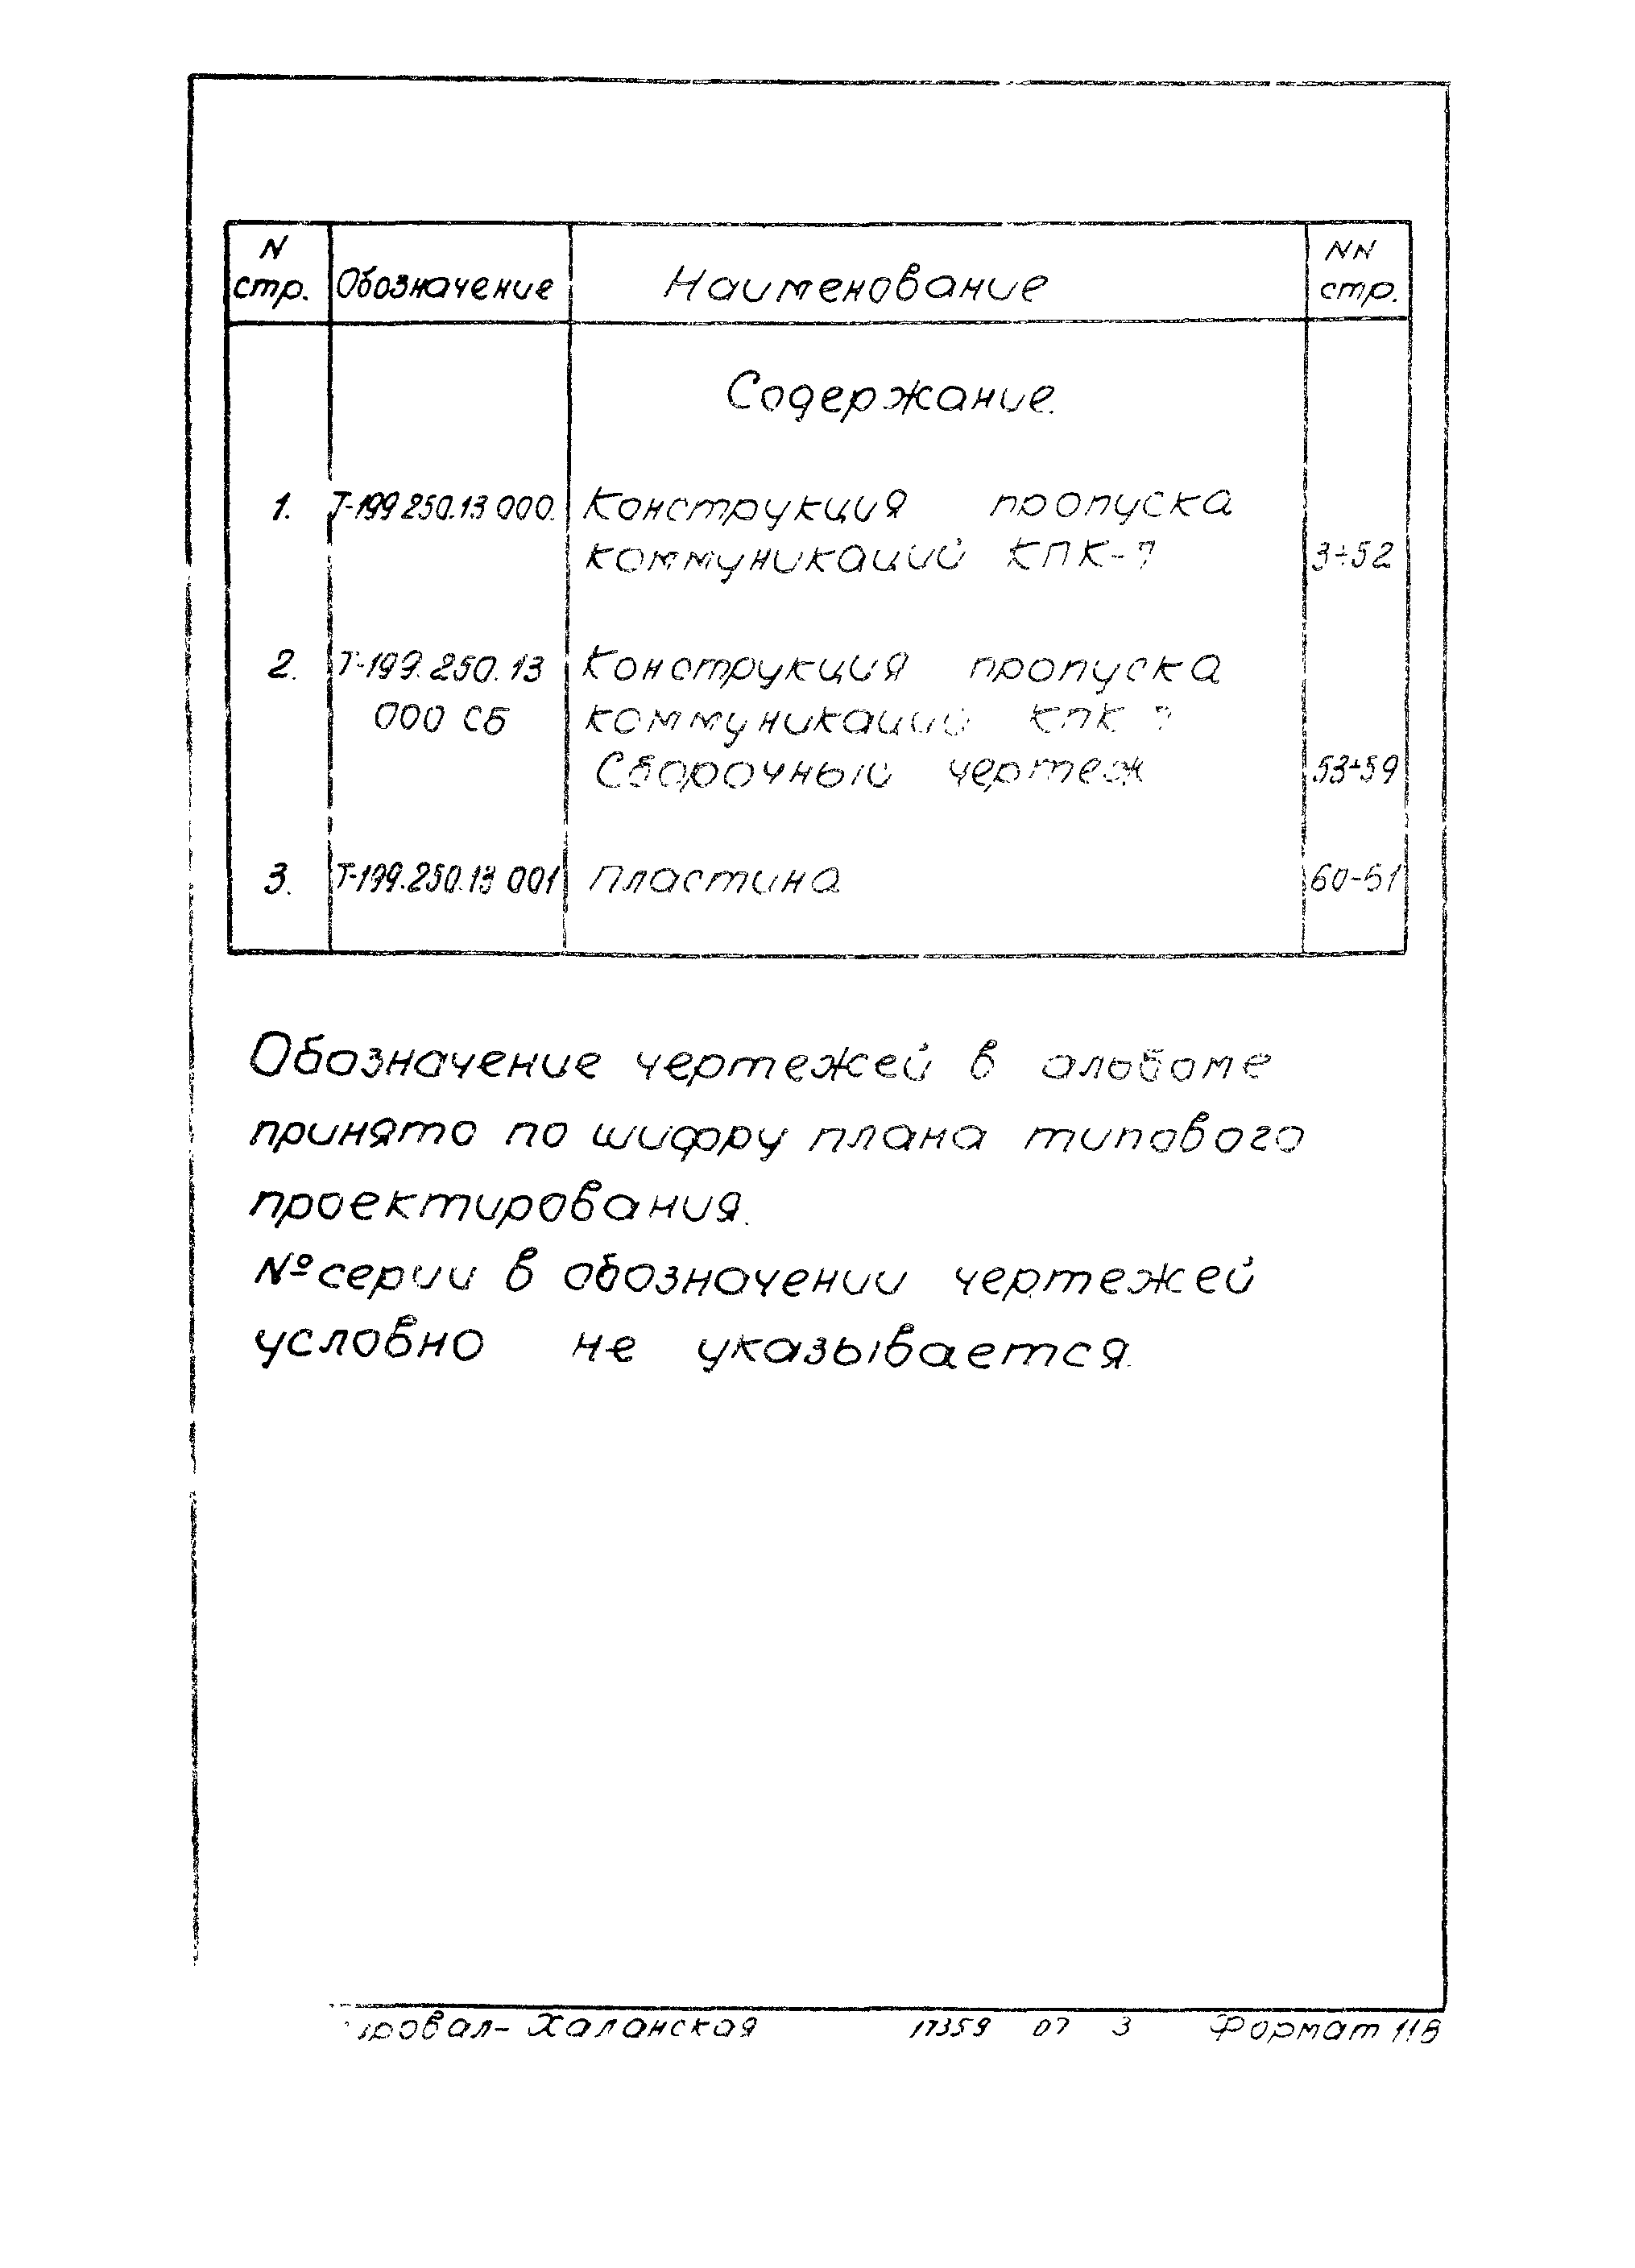 N
стр.
Обозначение
Наименование
NN
стр.
Содержание.
1. Т-199 250.13 000. Конструкция пропуска
коммуникаций КПК-7 3÷52
2. Т-199. 250. 13 Конструкция пропуска
000 СБ коммуникаций КПК 7
Сборочный чертеж 53÷59
3. Т-199.250.13 001 Пластина 60-61
Обозначение чертежей в альбоме
принято по шифру плана типового
проектирования.
№ серии в обозначении чертежей
условно не указывается.
Халанская 17359 07 3 Формат 11В